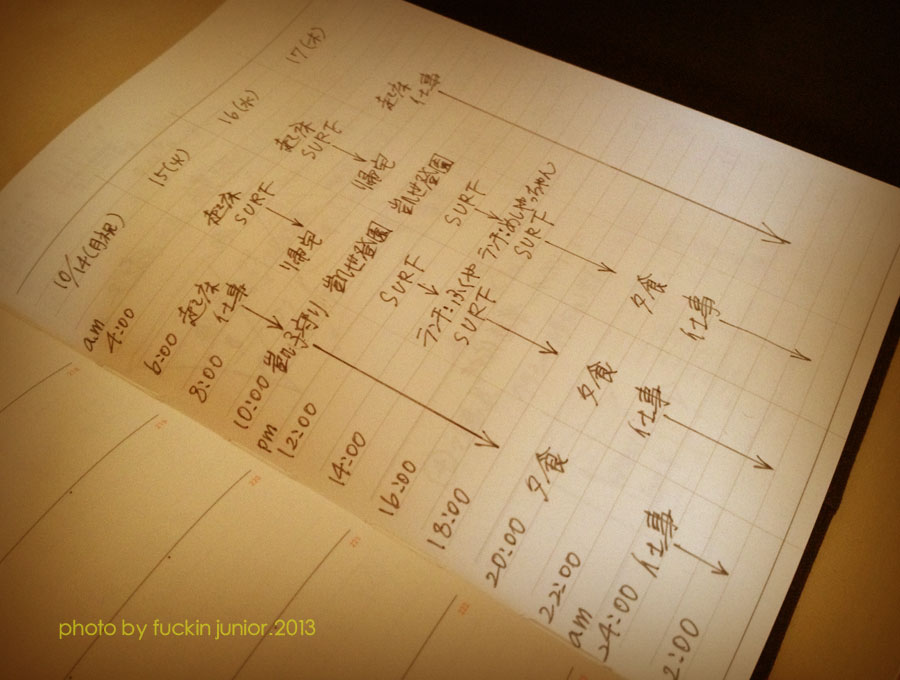 10/14(月祝)
15(火)
16(水)
17(木)
am
4:00
6:00
8:00
10:00
pm
12:00
14:00
16:00
18:00
20:00
22:00
am
24:00
2:00
起床
仕事
子守り
夕食
仕事
起床
SURF
帰宅
凱世登園
SURF
ランチ:ふくや
SURF
夕食
仕事
起床
SURF
帰宅
凱世登園
SURF
ランチ:めしやっちゃん
SURF
夕食
仕事
起床
仕事
photo by fuckin junior.2013